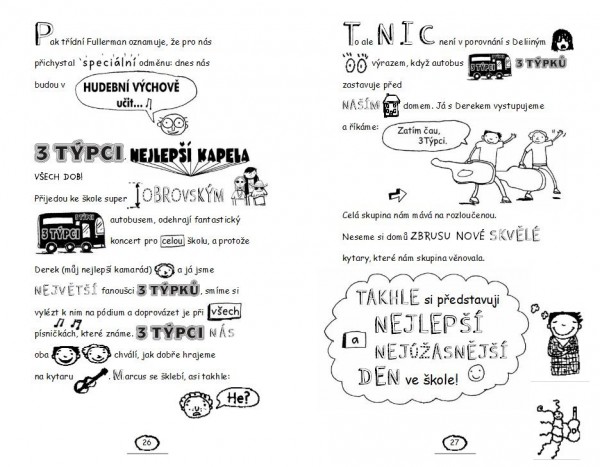 Pak třídní Fullerman oznamuje, že pro nás
přichystal speciální odměnu: dnes nás
budou v HUDEBNÍ VÝCHOVĚ
učit...
3 TÝPCI, NEJLEPŠÍ KAPELA
VŠECH DOB!
Přijedou ke škole super OBROVSKÝM
3 TÝPCI
3 TÝPCI autobusem, odehrají fantastický
koncert pro celou školu, a protože
Derek (můj nejlepší kamarád) a já jsme
NEJVĚTŠÍ fanoušci 3 TÝPKŮ, smíme si
vylézt k nim na pódium a doprovázet je při všech
písničkách, které známe. 3 TÝPCI NÁS
oba chválí, jak dobře hrajeme
na kytaru. Marcus se šklebí, asi takhle:
He?
26
To ale NIC není v porovnání s Deliiným
výrazem, když autobus 3 TÝPKŮ
zastavuje před
NAŠÍM domem. Já s Derekem vystupujeme
a říkáme:
Zatím čau,
3Týpci.
Celá skupina nám mává na rozloučenou.
Neseme si domů ZBRUSU NOVÉ SKVĚLÉ
kytary, které nám skupina věnovala.
TAKHLE si představuji
NEJLEPŠÍ
a
NEJÚŽASNĚJŠÍ
DEN ve škole!
27